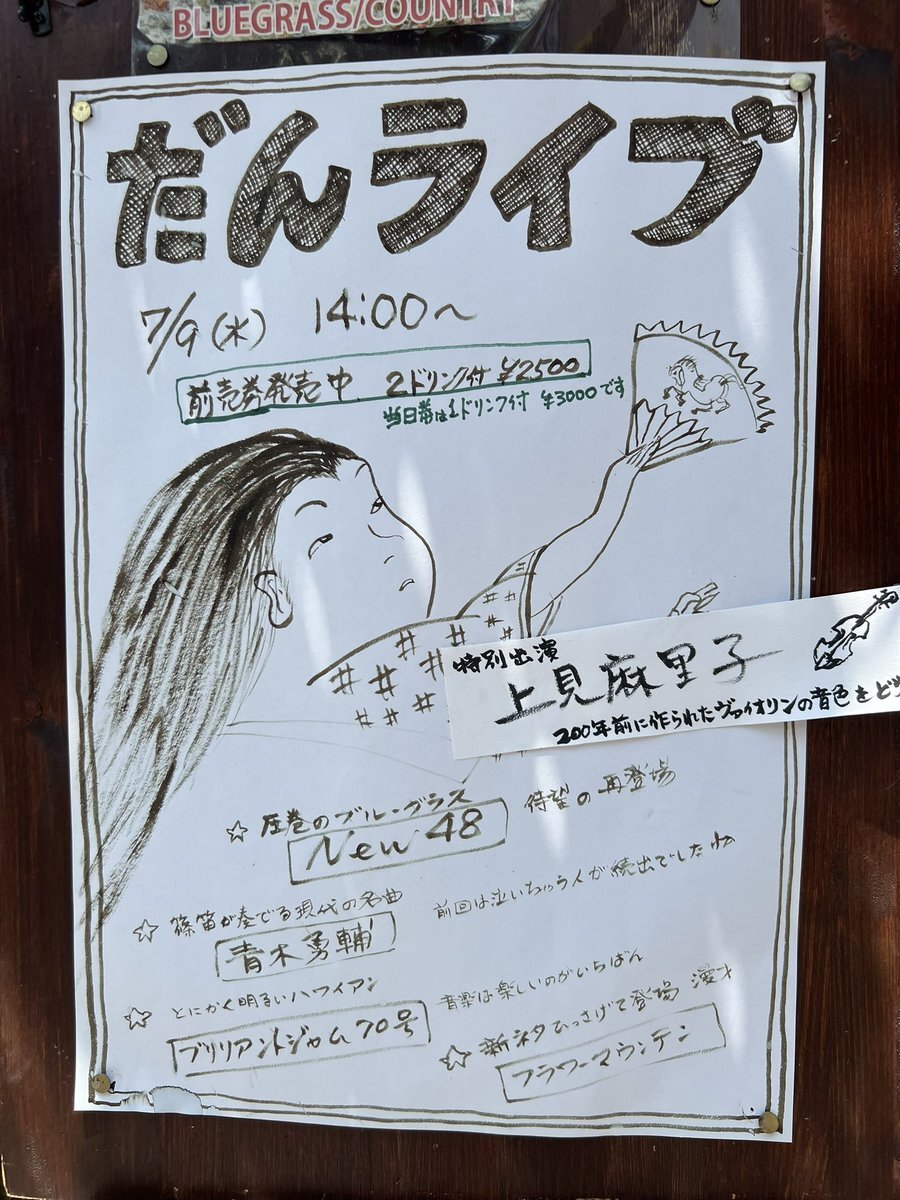 BLUEGRASS/COUNTRY
だんライブ
7/9(水) 14:00〜
前売券発売中 2ドリンク付 ¥2500
当日券は1ドリンク付 ¥3000です
特別出演
上見麻里子
200年前に作られたヴァイオリンの音色をど
☆ 圧巻のブルーグラス
New 48
待望の再登場
☆ 篠笛が奏でる現代の名曲
青木勇輔
前回は泣いちゃう人が続出でしたね
☆ とにかく明るいハワイアン
ブリリアントジャム70号
音楽は楽しいのがいちばん
☆ 新ネタひっさげて登場 漫才
フラワーマウンテン